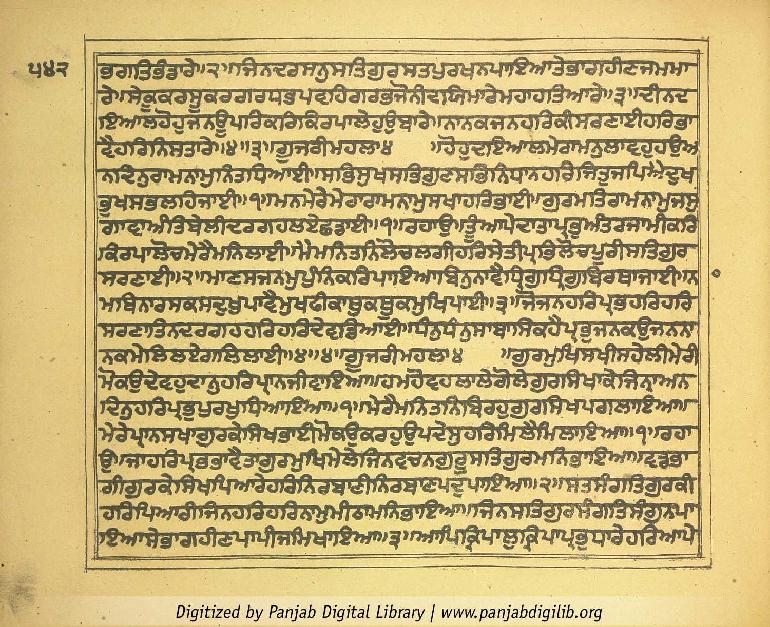 ੫੪੨
ਭਗਤਿਭੰਡਾਰੇ॥੨॥ਜਿਨਦਰਸਨੁਸਤਿਗੁਰੁਸਤਪੁਰਖਨਪਾਇਆਤੇਭਾਗਹੀਣਜਮਮਾ
ਰੇ॥ਸੇਕੂਕਰਸੂਕਰਗਰਧਭਪਵਹਿਗਰਭਜੋਨੀਦਯਿਮਾਰੇਮਹਾਹਤਿਆਰੇ॥੩॥ਦੀਨਦ
ਇਆਲਹੋਹੁਜਨਊਪਰਿਕਰਿਕਿਰਪਾਲੇਹੁਉਬਾਰੇ॥ਨਾਨਕਜਨਹਰਿਕੀਸਰਣਾਈਹਰਿਭਾ
ਵੈਹਰਿਨਿਸਤਾਰੇ॥੪॥੩॥ਗੂਜਰੀਮਹਲਾ੪ ॥ਹੋਹੁਦਇਆਲਮੇਰਾਮਨੁਲਾਵਹੁਹਉਅ
ਨਦਿਨੁਰਾਮਨਾਮੁਨਿਤਧਿਆਈ॥ਸਭਿਸੁਖਸਭਿਗੁਣਸਭਿਨਿਧਾਨਹਰਿਜਿਤੁਜਪਿਐਦੁਖ
ਭੁਖਸਭਲਹਿਜਾਈ॥੧॥ਮਨਮੇਰੇਮੇਰਾਰਾਮਨਾਮੁਸਖਾਹਰਿਭਾਈ॥ਗੁਰਮਤਿਰਾਮਨਾਮੁਜਸੁ
ਗਾਵਾਅੰਤਿਬੇਲੀਦਰਗਹਲਏਛਡਾਈ॥੧॥ਰਹਾਉ॥ਤੂੰਆਪੇਦਾਤਾਪ੍ਰਭੁਅੰਤਰਜਾਮੀਕਰਿ
ਕਿਰਪਾਲੋਚਮੇਰੈਮਨਿਲਾਈ॥ਮੈਮਨਿਤਨਿਲੋਚਲਗੀਹਰਿਸੇਤੀਪ੍ਰਭਿਲੋਚਪੂਰੀਸਤਿਗੁਰ
ਸਰਣਾਈ॥੨॥ਮਾਣਸਜਨਮੁਪੁੰਨਿਕਰਿਪਾਇਆਬਿਨੁਨਾਵੈਧ੍ਰਿਗੁਧ੍ਰਿਗੁਬਿਰਥਾਜਾਈ॥ਨਾ
ਮਬਿਨਾਰਸਕਸਦੁਖੁਪਾਵੈਮੁਖਫੀਕਾਥੁਕਥੂਕਮੁਖਿਪਾਈ॥੩॥ਜੋਜਨਹਰਿਪ੍ਰਭਹਰਿਹਰਿ
ਸਰਣਾਤਿਨਦਰਗਹਹਰਿਹਰਿਦੇਵਡਿਆਈ॥ਧੰਨੁਧੰਨੁਸਾਬਾਸਿਕਹੈਪ੍ਰਭੁਜਨਕਉਜਨਨਾ
ਨਕਮੇਲਿਲਏਗਲਿਲਾਈ॥੪॥੪॥ਗੂਜਰੀਮਹਲਾ੪ ॥ਗੁਰਮੁਖਿਸਖੀਸਹੇਲੀਮੇਰੀ
ਮੋਕਉਦੇਵਹੁਦਾਨੁਹਰਿਪ੍ਰਾਨਜੀਵਾਇਆ॥ਹਮਹੋਵਹਲਾਲੇਗੋਲੇਗੁਰਸਿਖਾਕੇਜਿਨਾਅਨ
ਦਿਨੁਹਰਿਪ੍ਰਭੁਪੁਰਖੁਧਿਆਇਆ॥੧॥ਮੇਰੈਮਨਿਤਨਿਬਿਰਹੁਗੁਰਸਿਖਪਗਲਾਇਆ॥
ਮੇਰੇਪ੍ਰਾਨਸਖਾਗੁਰਕੇਸਿਖਭਾਈਮੋਕਉਕਰਹੁਉਪਦੇਸੁਹਰਿਮਿਲੈਮਿਲਾਇਆ॥੧॥ਰਹਾ
ਉ॥ਜਾਹਰਿਪ੍ਰਭਭਾਵੈਤਾਗੁਰਮੁਖਿਮੇਲੇਜਿਨਵਚਨਗੁਰੂਸਤਿਗੁਰਮਨਿਭਾਇਆ॥ਵਡਭਾ
ਗੀਗੁਰਕੇਸਿਖਪਿਆਰੇਹਰਿਨਿਰਬਾਣੀਨਿਰਬਾਣਪਦੁਪਾਇਆ॥੨॥ਸਤਸੰਗਤਿਗੁਰਕੀ
ਹਰਿਪਿਆਰੀਜਿਨਹਰਿਹਰਿਨਾਮੁਮੀਠਾਮਨਿਭਾਇਆ॥ਜਿਨਸਤਿਗੁਰਸੰਗਤਿਸੰਗੁਨਪਾ
ਇਆਸੇਭਾਗਹੀਣਪਾਪੀਜਮਿਖਾਇਆ॥੩॥ਆਪਿਕ੍ਰਿਪਾਲੁਕ੍ਰਿਪਾਪ੍ਰਭੁਧਾਰੇਹਰਿਆਪੇ
Digitized by Panjab Digital Library | www.panjabdigilib.org